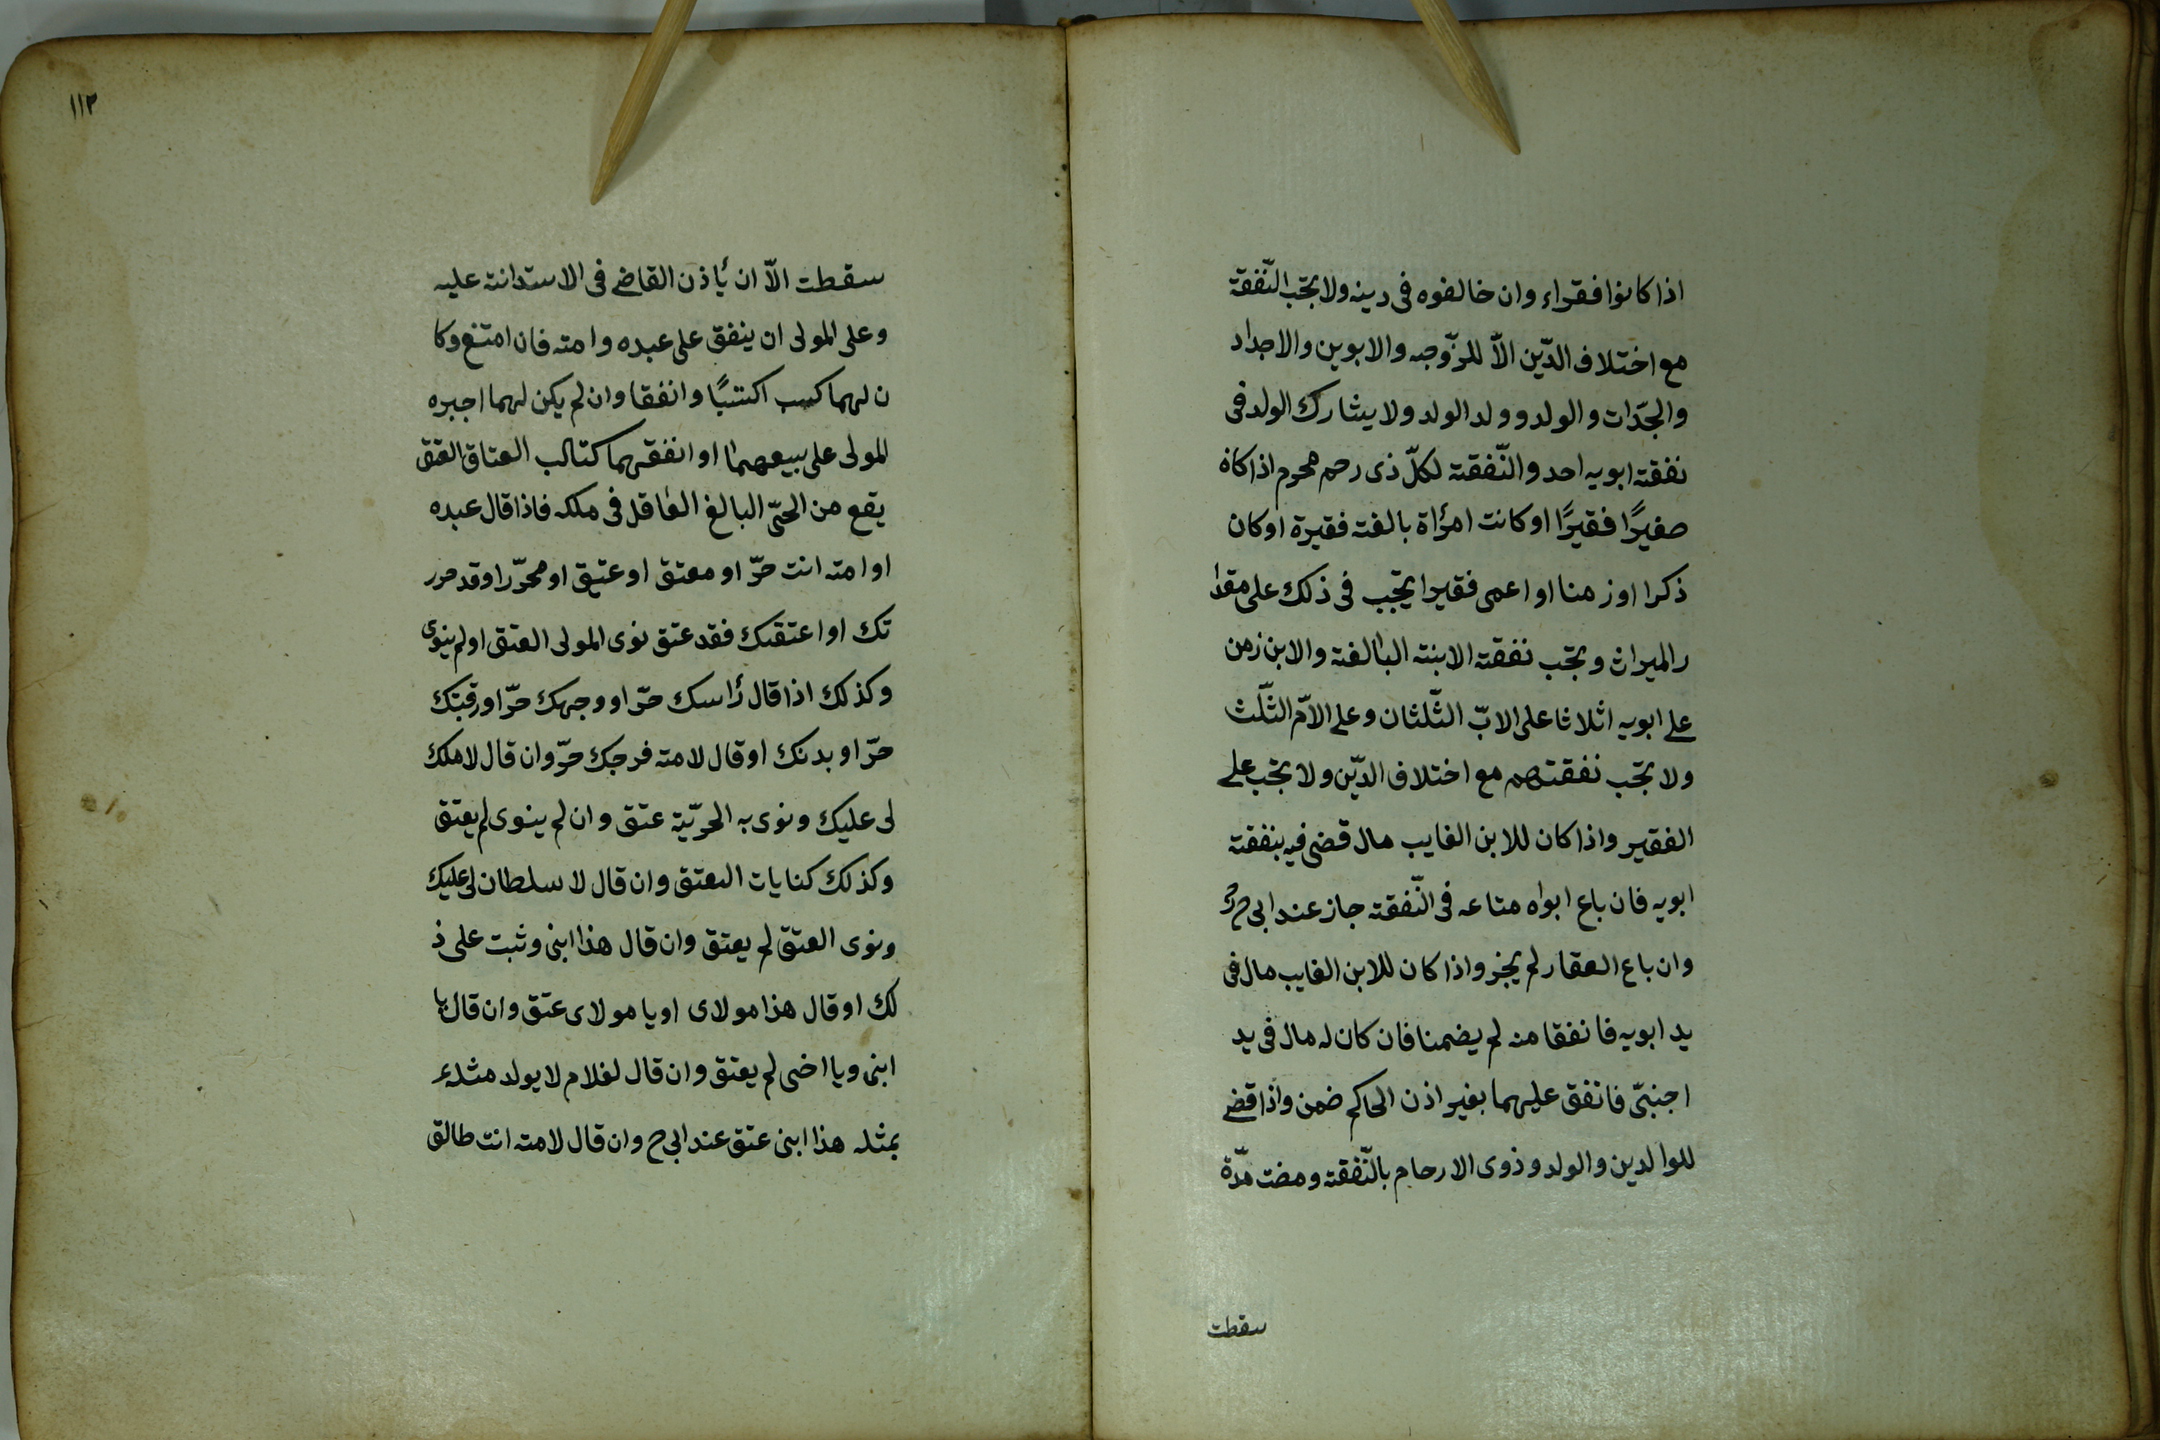 اذا كانوا فقراء وان خالفوه فى دينه ولا يجب النّفقة
مع اختلاف الدّين الاّ للزّوجه والابوين والاجداد
والجدّات والولد وولد الولد ولا يشارك الولد فى
نفقة ابويه احد والنّفقة لكلّ ذى رحم محرم اذا كان
صغيرًا فقيرًا او كانت امرأة بالغة فقيرة او كان
ذكرا او زمنا او اعمى فقيرا يجب فى ذلك على مقدا
ر الميراث ويجب نفقة الابنة البالغة والابن زمن
على ابويه اثلاثا على الابّ الثّلثان وعلى الامّ الثّلث
ولا يجب نفقتهم مع اختلاف الدّين ولا يجب على
الفقير واذا كان للابن الغايب مال قضى فيه بنفقة
ابويه فان باع ابواه متاعه فى النّفقة جاز عند ابى ح
وان باع العقار لم يجز واذا كان للابن الغايب مال فى
يد ابويه فانفقا منه لم يضمنا فان كان له مال فى يد
اجنبىّ فانفق عليهما بغير اذن الحاكم ضمن واذا قضى
للوالدين والولد وذوى الارحام بالنّفقة ومضت مدّة
سقطت
١١٣
سقطت الاّ ان يأذن القاضى فى الاستدانة عليه
وعلى المولى ان ينفق على عبده وامته فان امتنع وكا
ن لهما كسب اكتسبًا وانفقا وان لم يكن لهما اجبره
المولى على بيعهما او انفقهما كتاب العتاق العتق
يقع من الحىّ البالغ العاقل فى ملكه فاذا قال عبده
او امته انت حرّ او معتق او عتيق او محرّر او قد حرر
تك او اعتقتك فقد عتق نوى المولى العتق او لم ينوى
وكذلك اذا قال رأسك حرّ او وجهك حرّ او رقبتك
حرّ او بدنك او قال لامته فرجك حرّ وان قال لا ملك
لى عليك ونوى به الحرّيّة عتق وان لم ينوى لم يعتق
وكذلك كنايات العتق وان قال لا سلطان لى عليك
ونوى العتق لم يعتق وان قال هذا ابنى وثبت على ذ
لك او قال هذا مولاى او يا مولاى عتق وان قال يا
ابنى ويا اخى لم يعتق وان قال لغلام لا يولد مثله
بمثله هذا ابنى عتق عند ابى ح وان قال لامته انت طالق